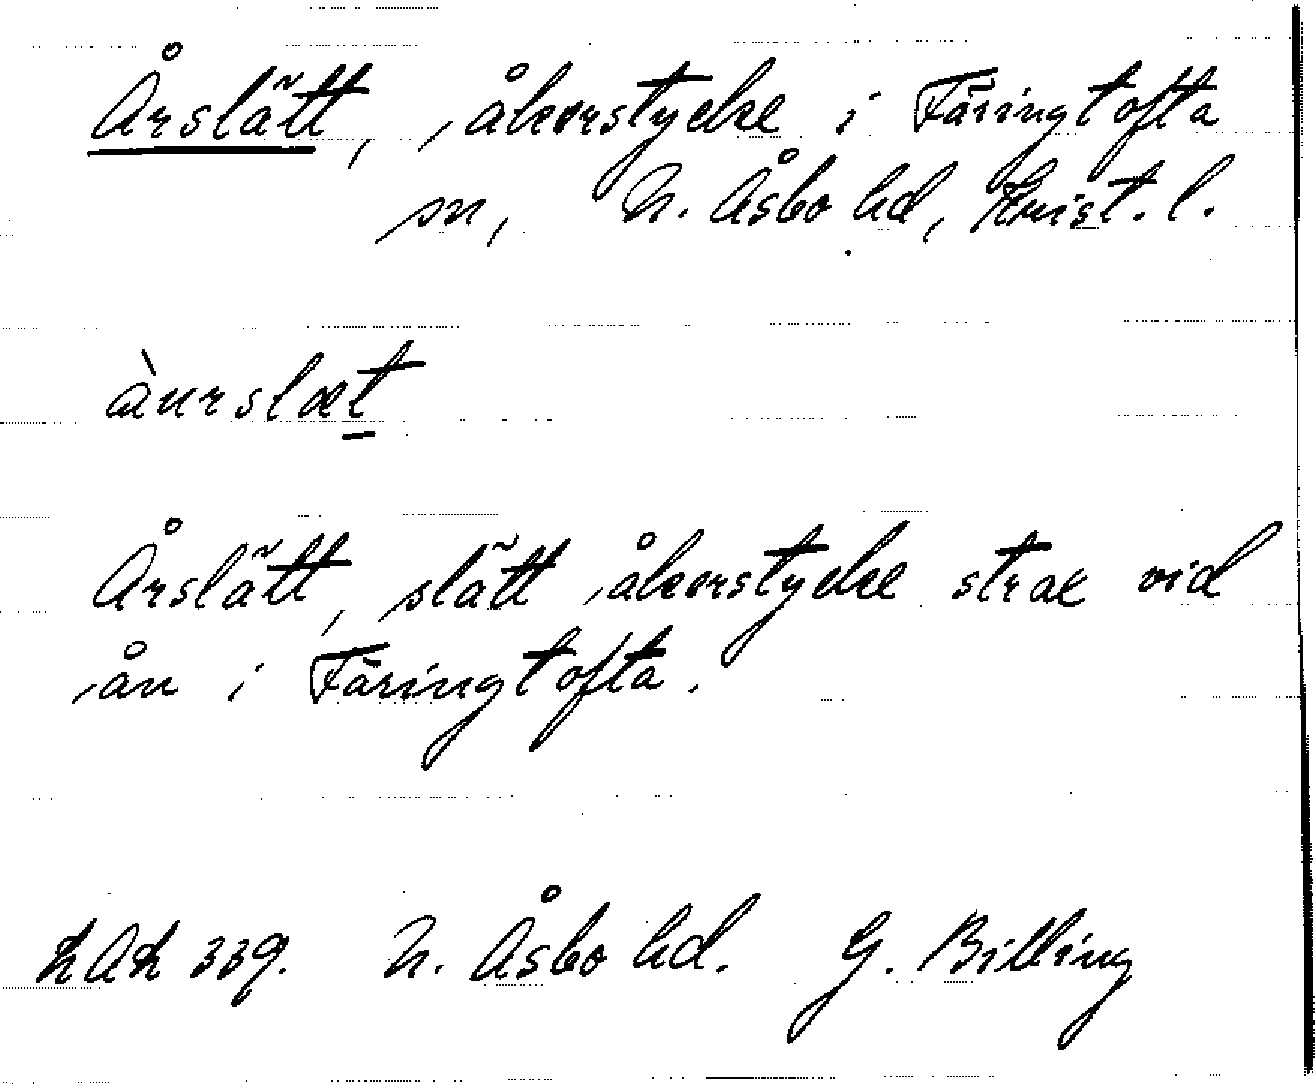 Årslätt, åkerstycke i Färingtofta
sn, N. Åsbo hd, Krist. l.
àurslæt
Årslätt, slätt åkerstycke strax vid
ån i Färingtofta.
339. N. Åsbo hd. G. Billing